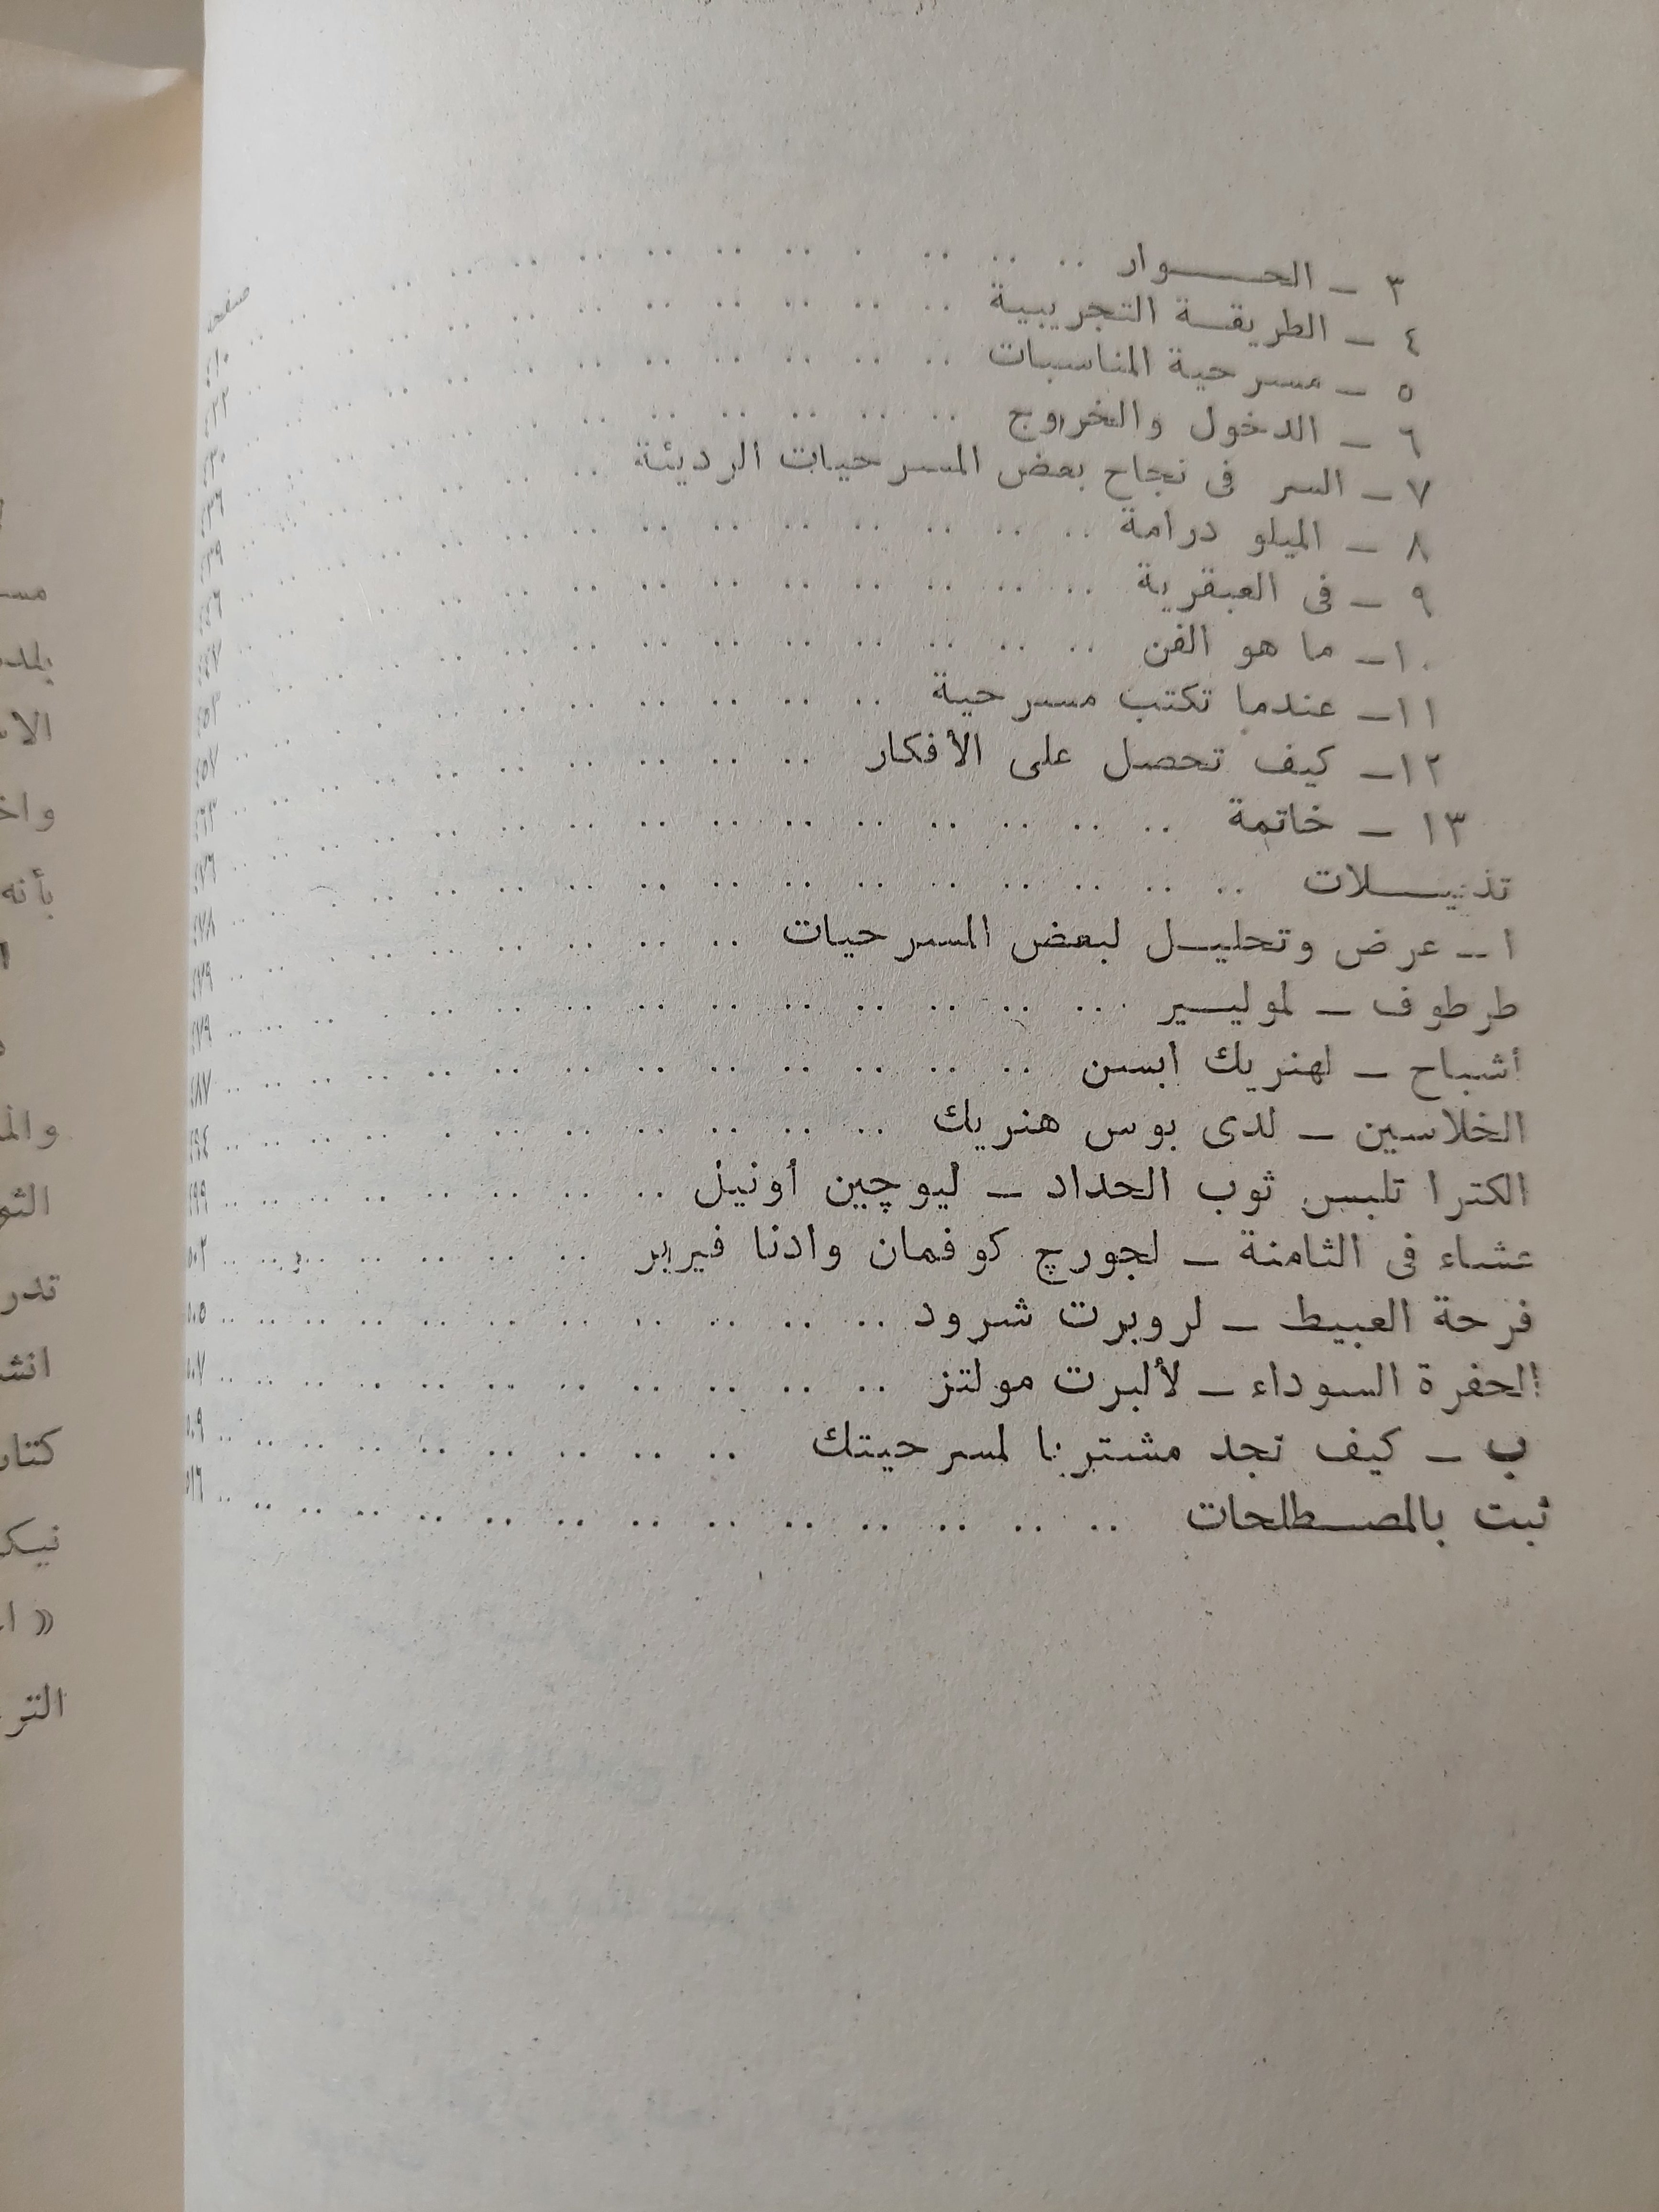 صفحة
٣ ــ الحــوار .. ٤١٠
٤ ــ الطريقة التجريبية .. ٤٢٢
٥ ــ مسرحية المناسبات .. ٤٣٠
٦ ــ الدخول والخروج .. ٤٣٦
٧ ــ السر فى نجاح بعض المسرحيات الرديئة .. ٤٣٩
٨ ــ الميلو درامة .. ٤٤٦
٩ ــ فى العبقرية .. ٤٤٧
١٠ــ ما هو الفن .. ٤٥٢
١١ــ عندما تكتب مسرحية .. ٤٥٧
١٢ــ كيف تحصل على الأفكار
١٣ ــ خاتمة .. ٤٧٦
تذييــلات .. ٤٧٨
ا ــ عرض وتحليــل لبعض المسرحيات .. ٤٧٩
طرطوف ــ لموليــير .. ٤٧٩
أشباح ــ لهنريك ابسن .. ٤٨٧
الخلاسين ــ لدى بوس هنريك .. ٤٩٤
الكترا تلبس ثوب الحداد ــ ليوچين أونيل .. ٤٩٩
عشاء فى الثامنة ــ لجورچ كوفمان وادنا فيربر .. ٥٠٢
فرحة العبيط ــ لروبرت شرود .. ٥٠٥
الحفرة السوداء ــ لألبرت مولتز .. ٥٠٧
ب ــ كيف تجد مشتريا لمسرحيتك .. ٥٠٩
ثبت بالمصــطلحات .. ٥١٦